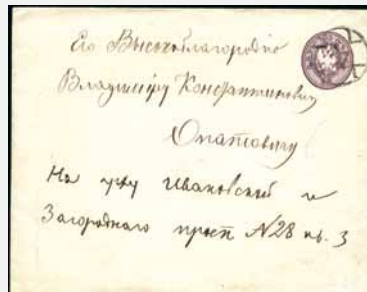 Его Высокоблагородию
Владиміру Константиновичу
Опатовичу
На углу Ивановской и
Загороднаго просп № 28 кв. 3